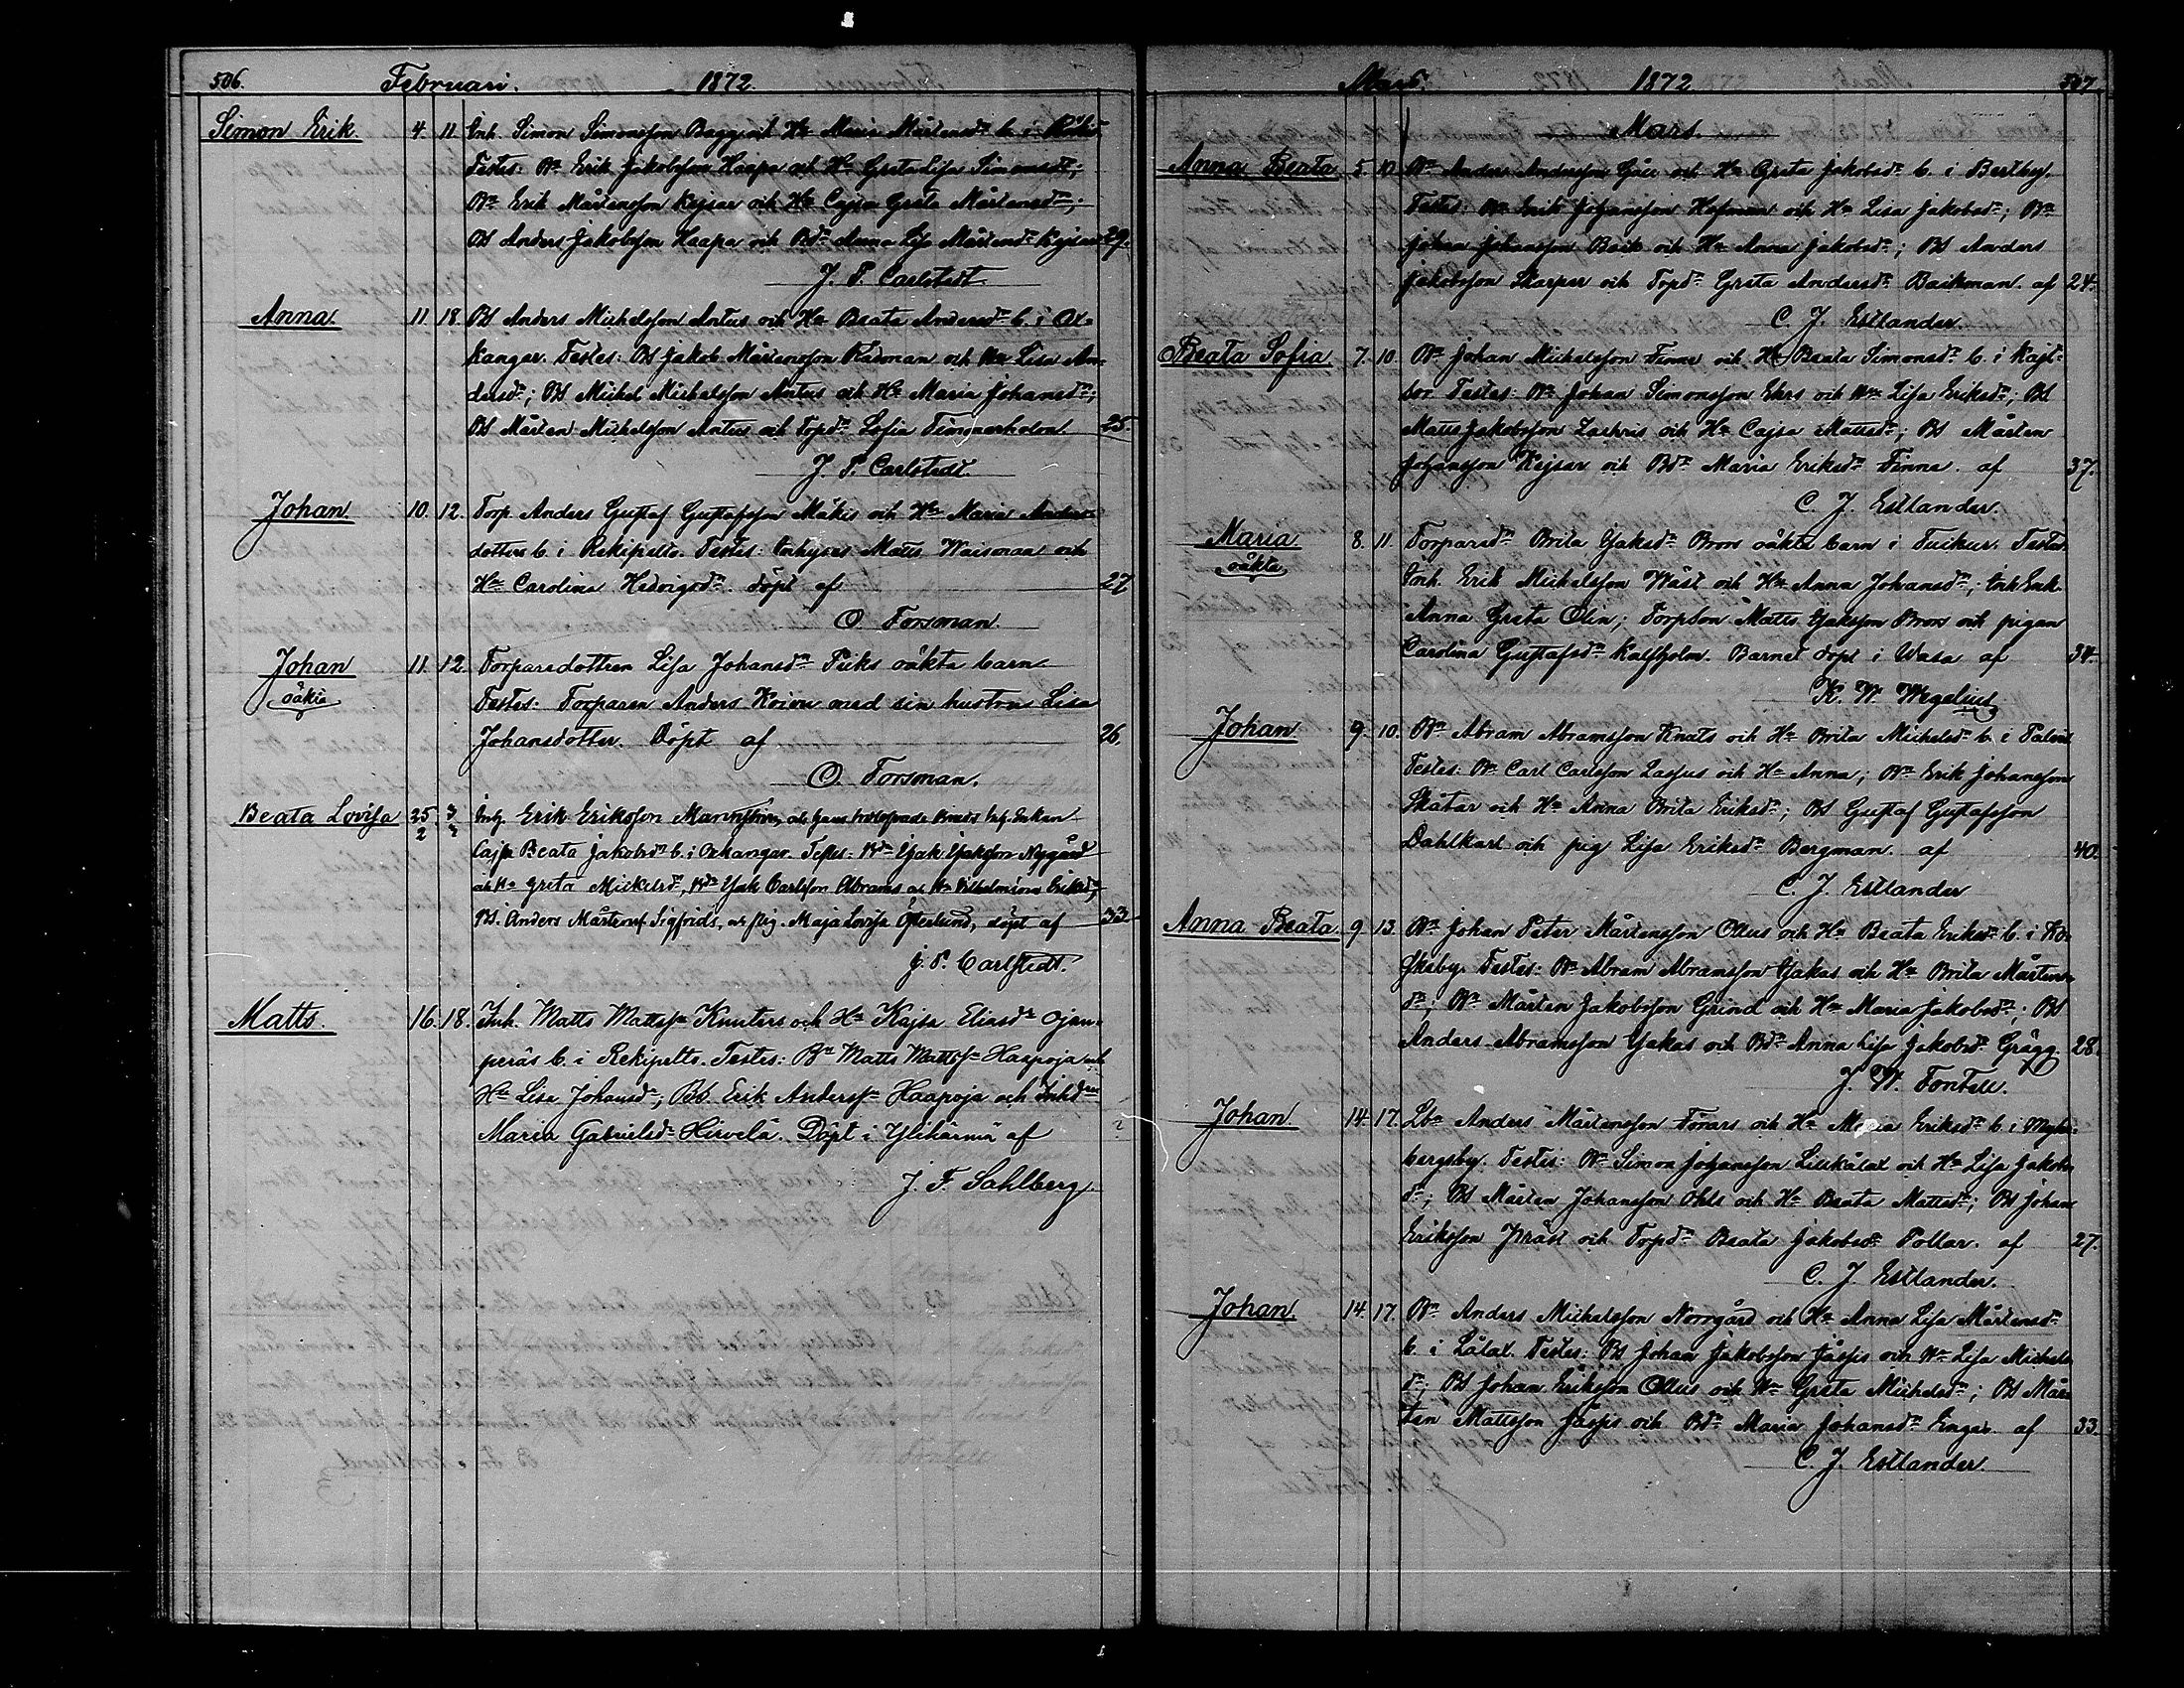 506. Februari. 1872.
Simon Erik. 4. 11. Inh. Simon Simonsson Bagge och Hu Maria Mårtensdr b. i
Testes: Bn Erik Jakobsson Haapa och Hu Greta Lisa Simonsdr;
Bn Erik Mårtensson Kejsar och Hu Cajsa Greta Mårtensdr;
BS Anders Jakobsson Haapa och Bdr Anna Lisa Mårtensdr Kejsar 29.
J. P. Carlstedt.
Anna. 11. 18. BS Anders Michelsson Antus och Hu Beata Andersdr b. i Ox-
kangar. Testes: BS Jakob Mårtensson Rådman och Hu Lisa An-
dersdr; BS Michel Michelsson Antus och Hu Maria Johansdr;
BS Mårten Michelsson Antus och Topdr Sofia Timmerhelin 25.
J. P. Carlstedt.
Johan. 10. 12. Torp. Anders Gustaf Gustafsson Mäkis och Hu Maria Anders-
dotter b. i Rekipelto. Testes: Inhyses Matts Waismaa och
Hu Carolina Hedvigsdr. döpt af 27
O. Forsman.
Johan 11. 12. Torparedottren Lisa Johansdr Piiks oäkta barn
oäkta
Testes: Torparen Anders Koivu med sin hustru Lisa
Johansdotter. Döpt af 26.
O. Forsman.
Beata Lovisa 25/2 3/3 Inh. Erik Eriksson och hans trolofvade Enkan
Cajsa Beata Jakobsdr b. i Oxkangar. Testes: Bdn Isak Isaksson Nygård
och Hu Greta Mickelsdr, Bdn Isak Carlsson Abrams och Hu Vilhelmina Eriksdr,
BS. Anders Mårtensf Sigfrids, och pig. Maja Lovisa Österlund, döpt af 33
J. P. Carlstedt.
Matts. 16. 18. Inh. Matts Mattsson Knuters och Hu Kajsa Eliasdr Ojan-
peräs b. i Rekipelto. Testes: Bn Matts Mattsson Haapoja och
Hu Lisa Johansdr; BS. Erik Andersson Haapoja och Inhdr
Maria Gabrielsdr Hirvelä. Döpt i Ylihärmä af ?
J. F. Sahlberg.
Mars. 1872 507
Mars.
Anna Beata 5. 10. Bn Anders Andersson Gåu och Hu Greta Jakobsdr b. i Bertby.
Testes: Bn Erik Johansson Hofman och Hu Lisa Jakobsdr; Bn
Johan Johansson Back och Hu Anna Jakobsdr; BS Anders
Jakobsson Skarper och Topdr Greta Andersdr Backman. af 24.
C. J. Estlander.
Beata Sofia 7. 10. Bn Johan Michelsson Finne och Hu Beata Simonsdr b. i Kajt-
sor Testes: Bn Johan Simonsson Ehrs och Hu Lisa Eriksdr; BS
Matts Jakobsson Zachris och Hu Cajsa Mattsdr; BS Mårten
Johansson Kejsar och Bdr Maria Eriksdr Finne. af 37.
C. J. Estlander.
Maria 8. 11. Torparedr Brita Isaksdr Brors oäkta barn i Tuckur. Testes:
oäkta
Inh. Erik Michelsson Wäst och Hu Anna Johansdr; Inh Enk.
Anna Greta Olin; Torpson Matts Isaksson Brors och pigan
Carolina Gustafsdr Kalfholm. Barnet döpt i Wasa af 34.
K. W. Wegelius
Johan 9. 10. Bn Abram Abramsson Knuts och Hu Brita Michelsdr b. i Palvis
Testes: Bn Carl Carlsson Lassus och Hu Anna; Bn Erik Johansson
Skåtar och Hu Anna Brita Eriksdr; BS Gustaf Gustafsson
Dahlkarl och pig Lisa Eriksdr Bergman. af 40.
C. J. Estlander
Anna Beata 9 13. Bn Johan Peter Mårtensson Ollus och Hu Beata Eriksdr b. i Ko-
skeby. Testes: Bn Abram Abramsson Isakas och Hu Brita Mårtens-
dr; Bn Mårten Jakobsson Grind och Hu Maria Jakobsdr; BS
Anders Abramsson Isakas och Bdr Anna Lisa Jakobsdr Grägg. 28.
J. W. Fontell.
Johan 14. 17. Lbn Anders Mårtensson Förars och Hu Maria Eriksdr b. i
bergsby. Testes: Bn Simon Johansson Lillkålax och Hu Lisa Jakobs-
dr; BS Mårten Johansson Ohls och Hu Beata Mattsdr; BS Johan
Eriksson Präst och Topdr Beata Jakobsdr Pollar. af 27.
C. J. Estlander.
Johan 14. 17. Bn Anders Michelsson Norrgård och Hu Anna Lisa Mårtensdr
b. i Lålax. Testes: BS Johan Jakobsson Jåssis och Hu Lisa Michels-
dr; BS Johan Eriksson Ollus och Hu Greta Michelsdr; BS Mår-
ten Mattsson Jåssis och Bdr Maria Johansdr Enges. af 33.
C. J. Estlander.